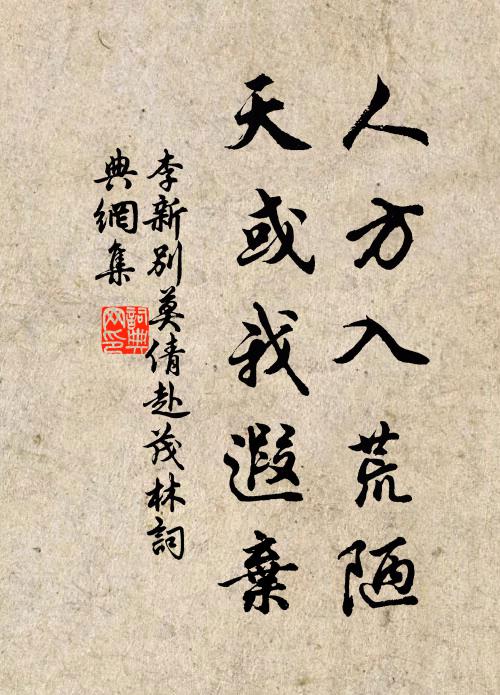 人方入荒陋
天或我遐棄
李新別莫倩赴茂林詞
典網集
詞典
网印